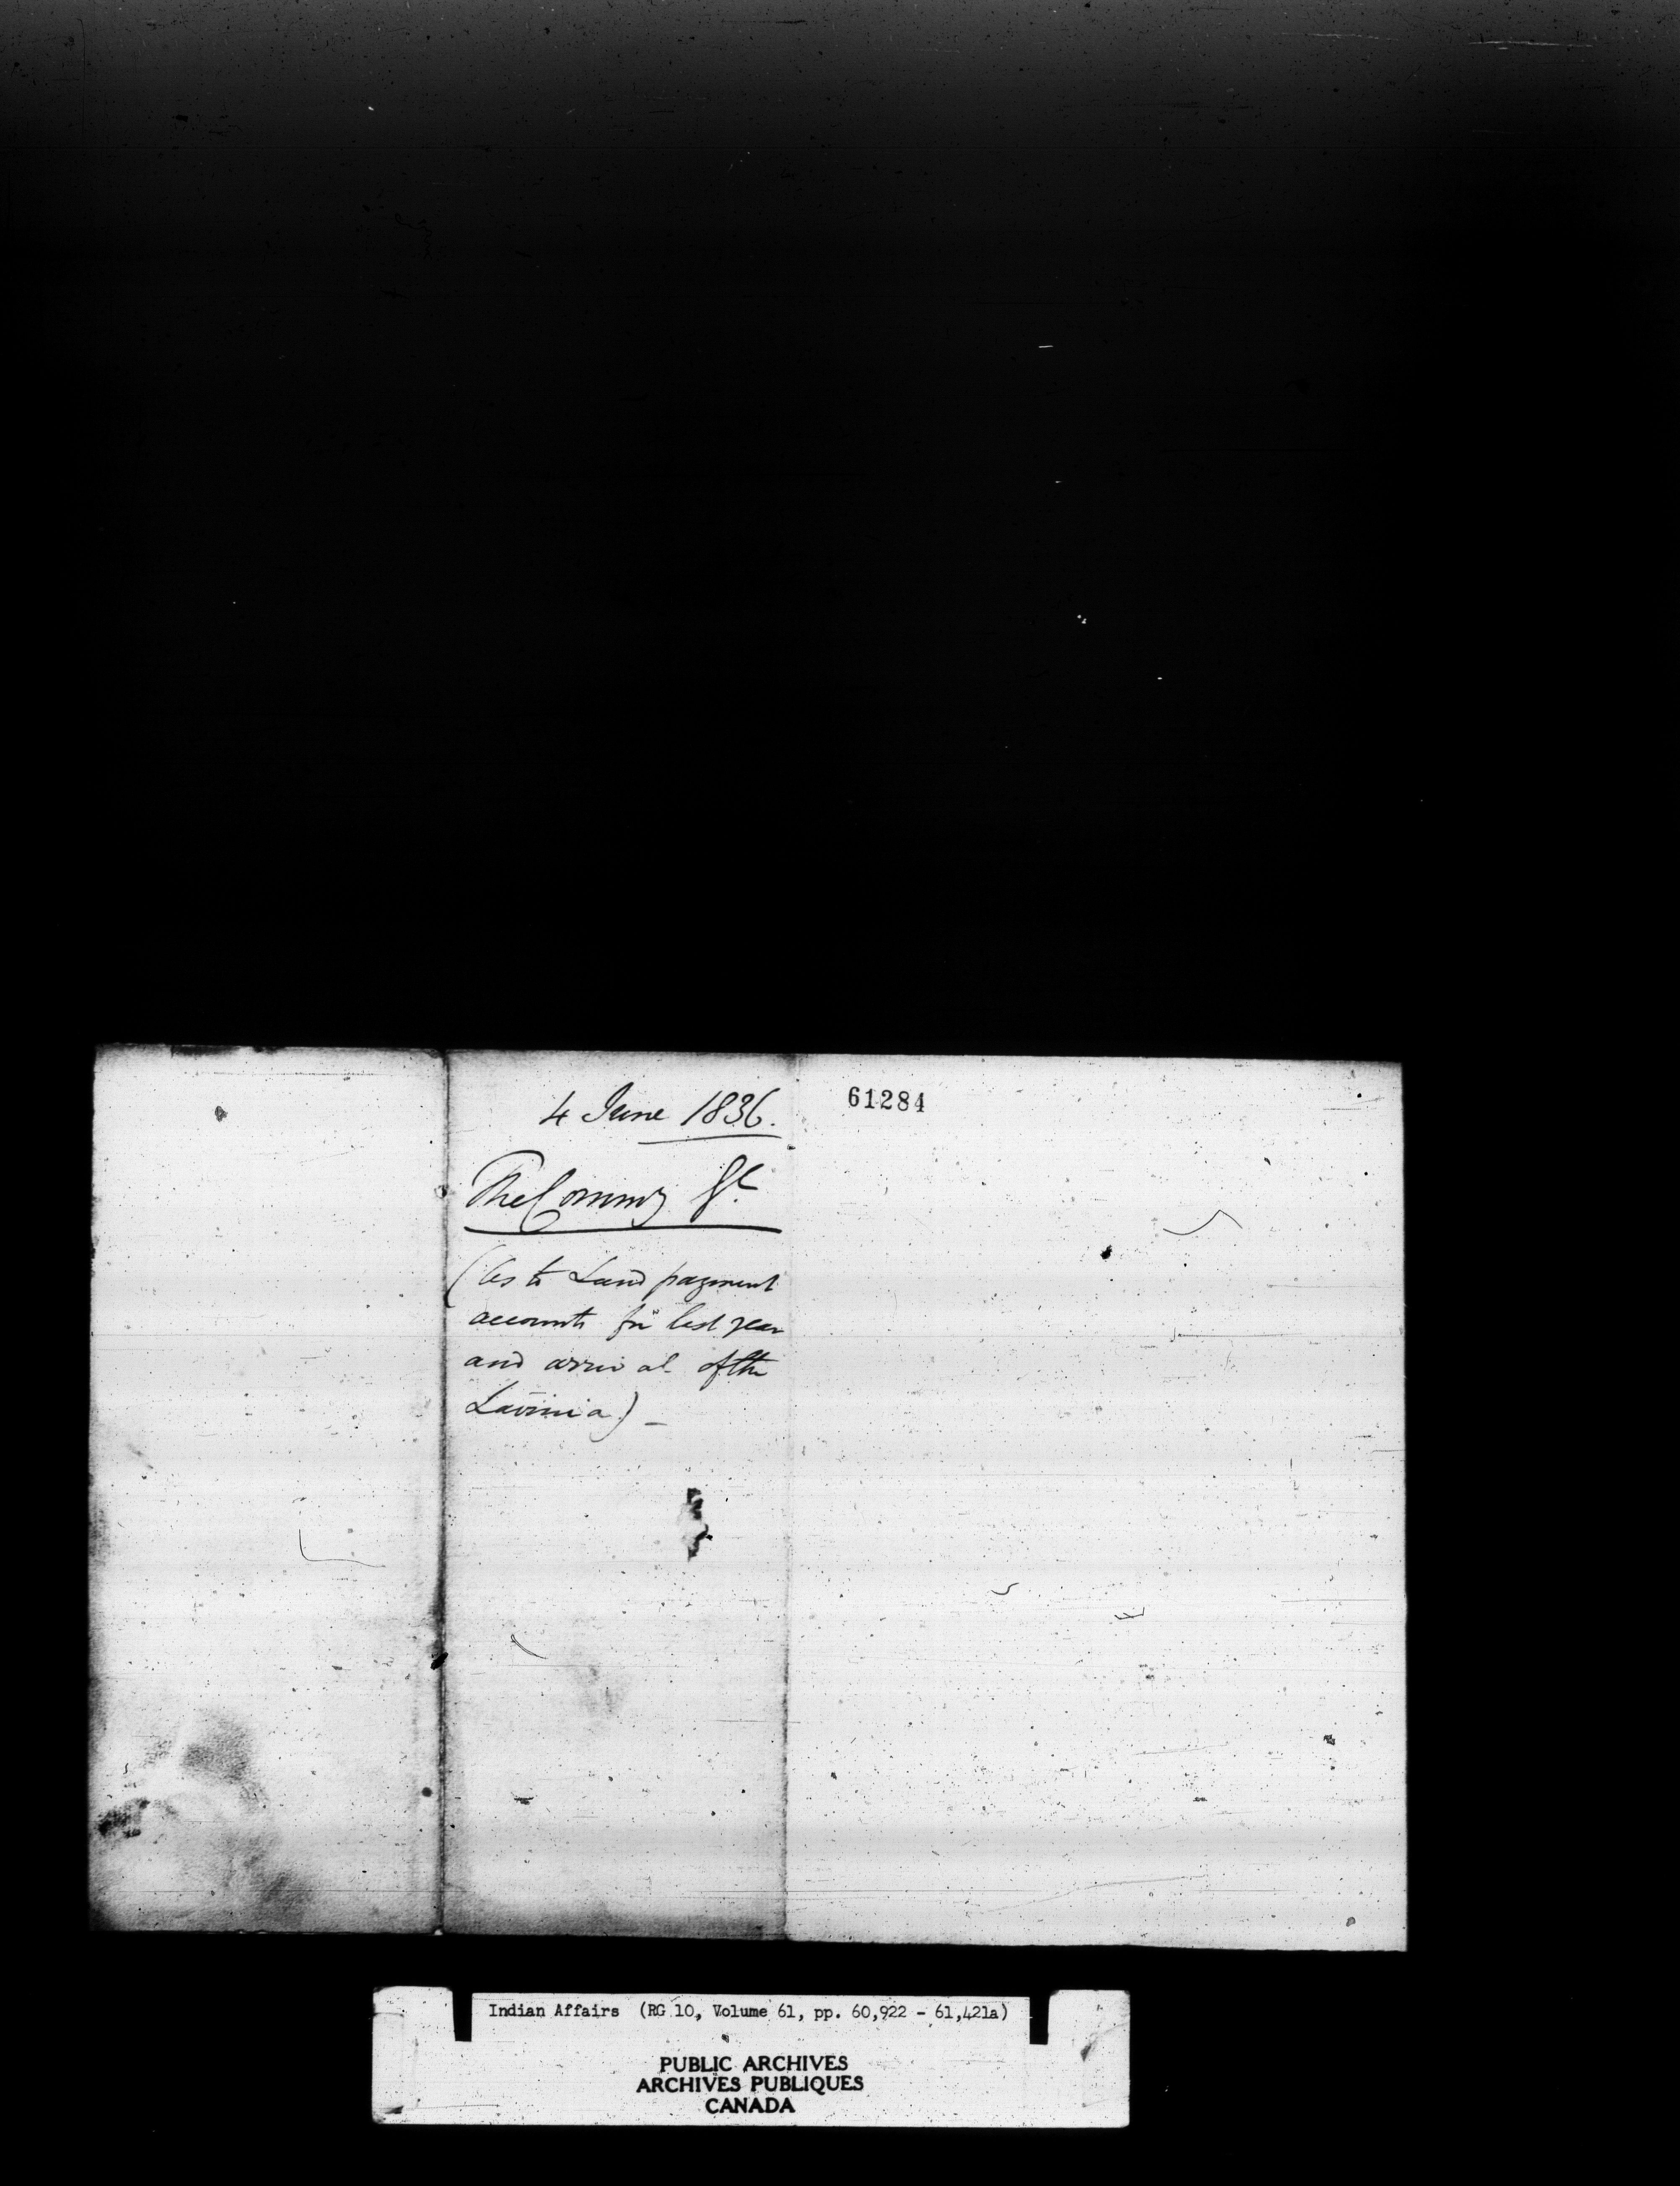 4 June 1836.
61284
The Commy Gl.
(As to Land payment
accounts for last year
and arrival of the
Lavinia) –
Indian Affairs (RG 10, Volume 61, pp. 60,922 - 61,421a)
PUBLIC ARCHIVES
ARCHIVES PUBLIQUES
CANADA